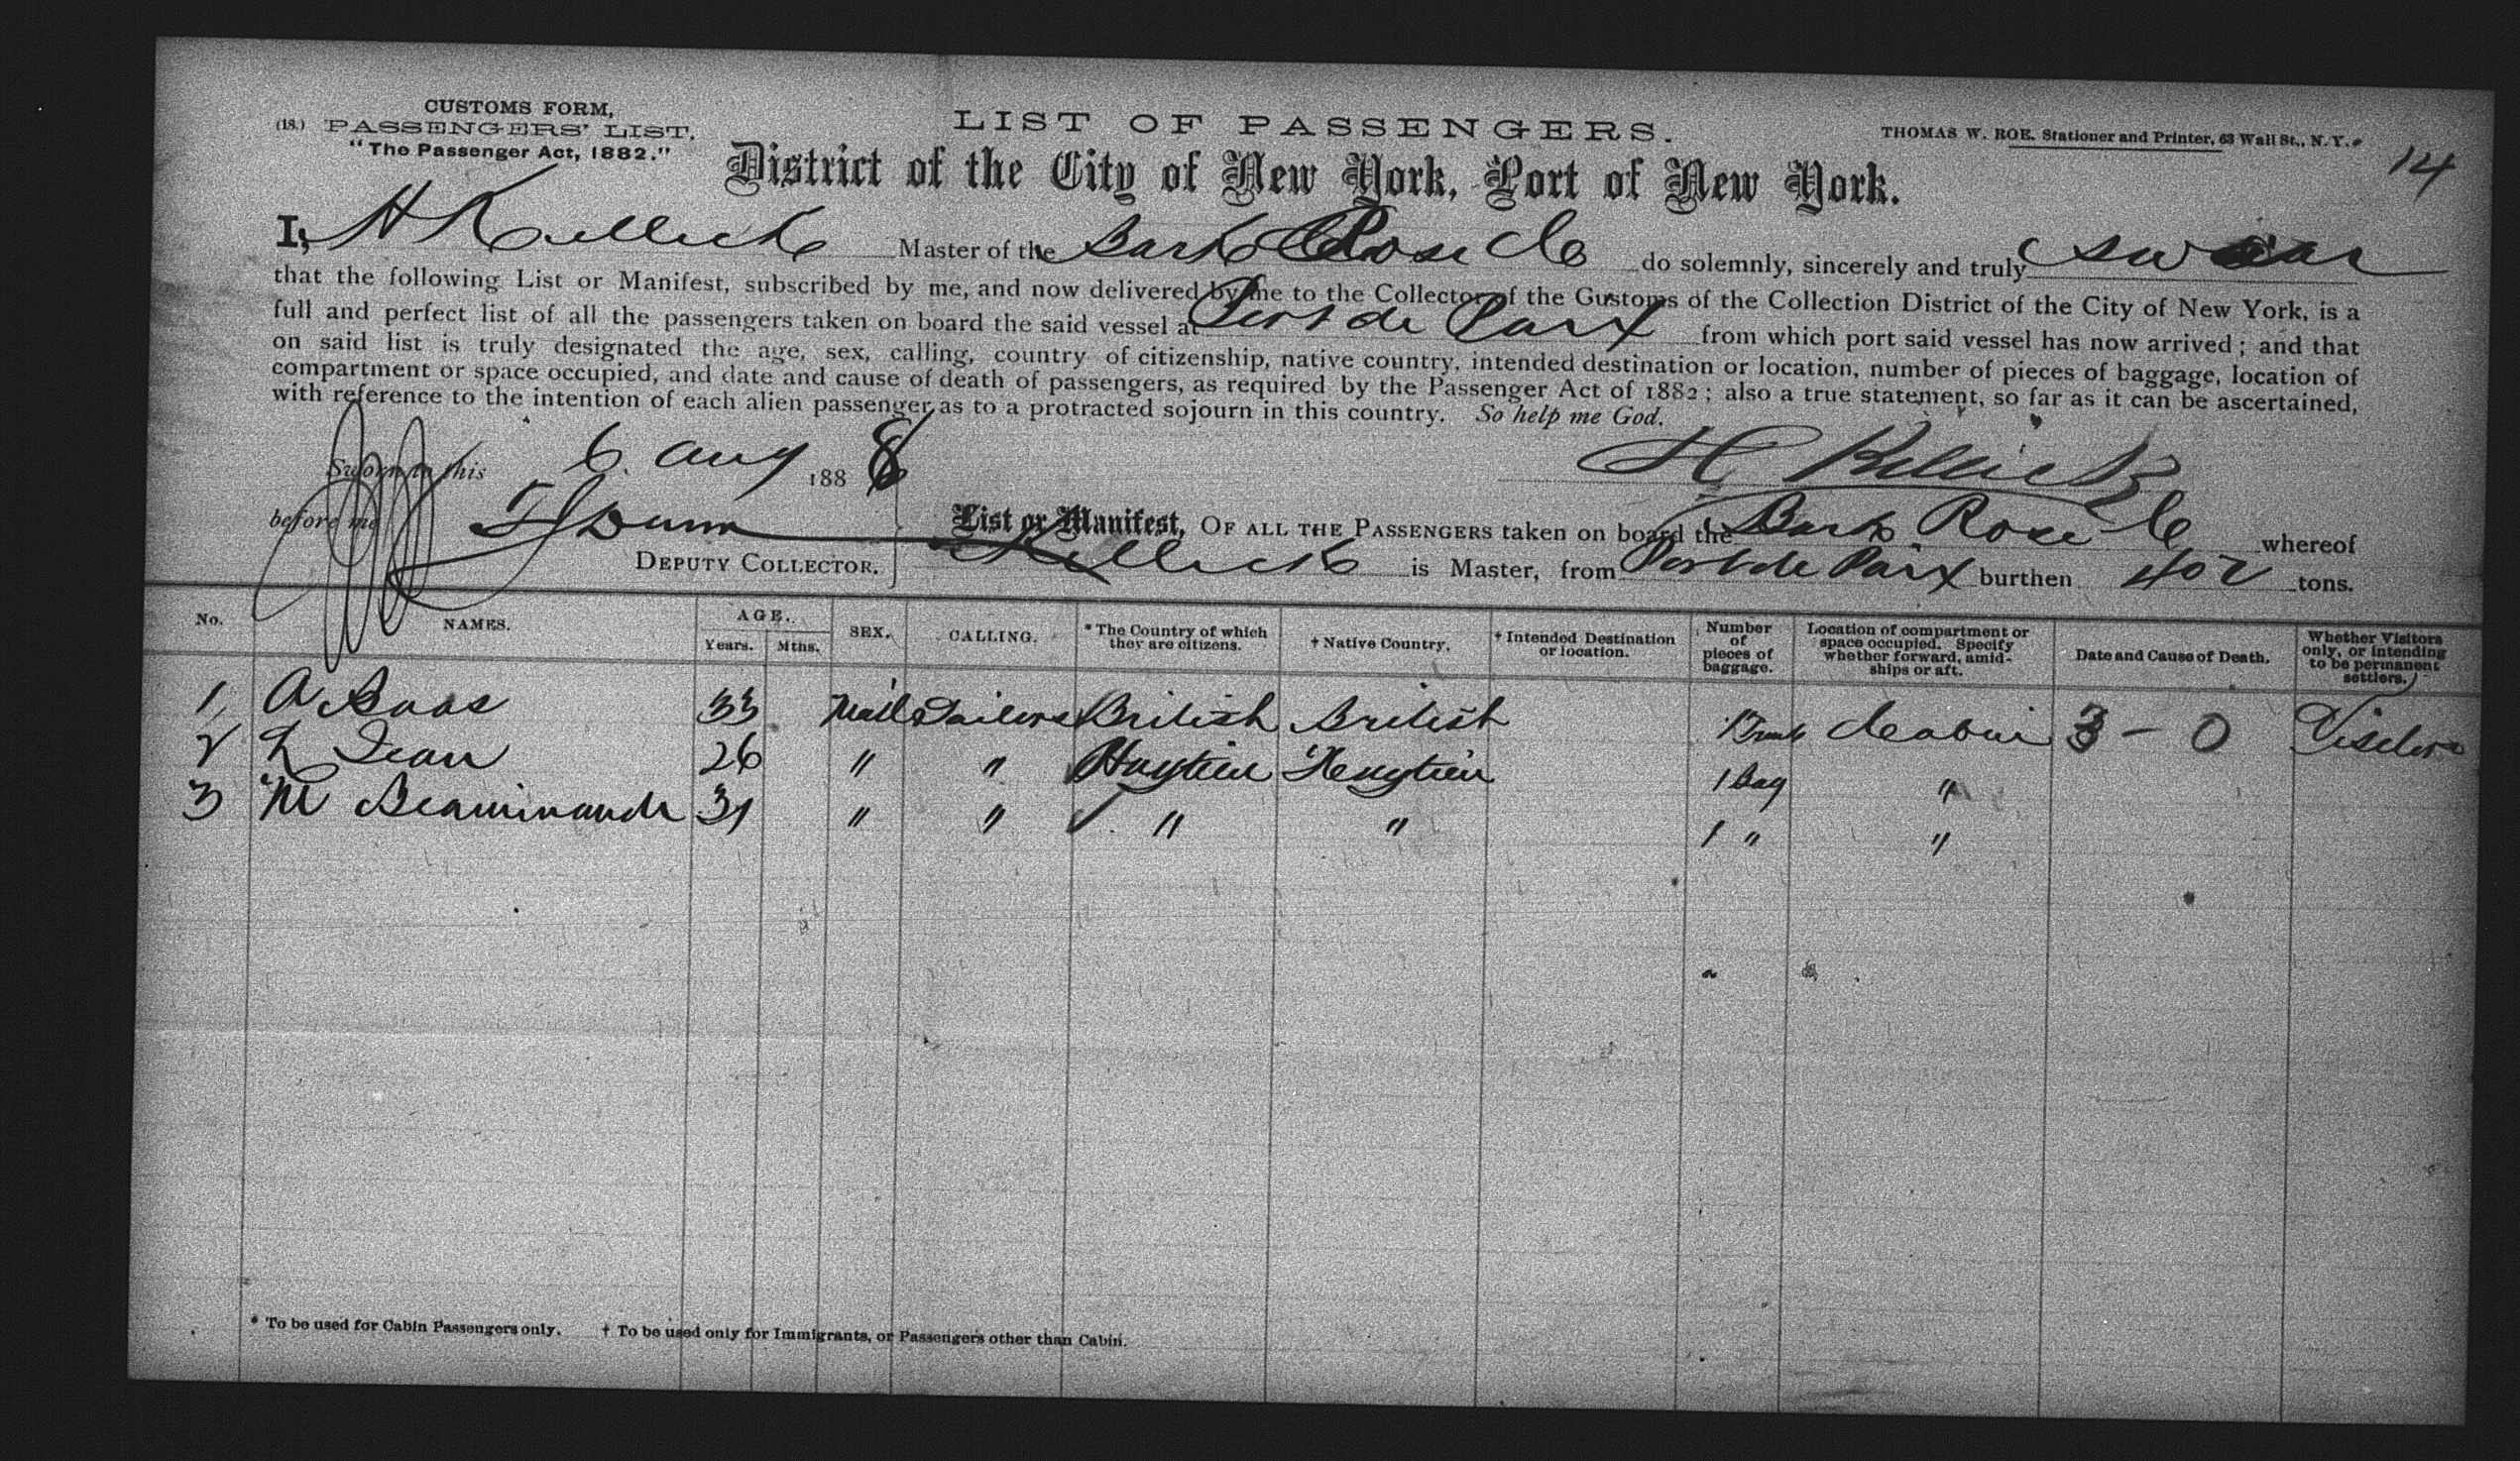 CUSTOMS FORM,
(18.) PASSENGERS' LIST.
"The Passenger Act, 1882."
LIST OF PASSENGERS.
THOMAS W. ROE, Stationer and Printer, 63 Wall St., N. Y.
14
District of the City of New York, Port of New York.
I, H Killick Master of the Bark Rose do solemnly, sincerely and truly swear
that the following List or Manifest, subscribed by me, and now delivered by me to the Collector of the Customs of the Collection District of the City of New York, is a
full and perfect list of all the passengers taken on board the said vessel at Port de Paix from which port said vessel has now arrived; and that
on said list is truly designated the age, sex, calling, country of citizenship, native country, intended destination or location, number of pieces of baggage, location of
compartment or space occupied, and date and cause of death of passengers, as required by the Passenger Act of 1882; also a true statement, so far as it can be ascertained,
with reference to the intention of each alien passenger as to a protracted sojourn in this country. So help me God.
Sworn to this 6. Aug 1888
H Killick
before me Dunn
DEPUTY COLLECTOR.
List or Manifest, OF ALL THE PASSENGERS taken on board the Bark Rose whereof
Killick is Master, from Port de Paix burthen 402 tons.
No. NAMES. AGE. Years. Mths. SEX. CALLING. * The Country of which they are citizens. † Native Country. † Intended Destination or location. Number of pieces of baggage. Location of compartment or space occupied. Specify whether forward, amidships or aft. Date and Cause of Death. Whether Visitors only, or intending to be permanent settlers.
1 A Baas 33 Mail Sailors British British 1 Trunk Cabin 3 - 0 Visitors
2 L Jean 26 " " Haytien Haytien 1 Bag "
3 M 31 " " " " 1 " "
* To be used for Cabin Passengers only. † To be used only for Immigrants, or Passengers other than Cabin.